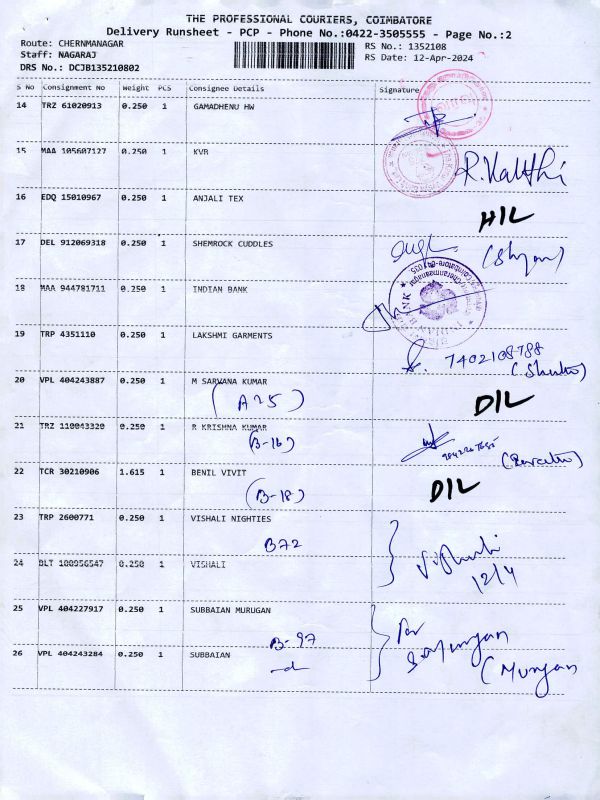 THE PROFESSIONAL COURIERS, COIMBATORE
Delivery Runsheet - PCP - Phone No.:0422-3505555 - Page No.:2
Route: CHERNMANAGAR RS No.: 1352108
Staff: NAGARAJ RS Date: 12-Apr-2024
DRS No.: DCJB135210802
S No Consignment No Weight PCS Consignee Details Signature
14 TRZ 61020913 0.250 1 GAMADHENU HW
15 MAA 105607127 0.250 1 KVR
16 EDQ 15010967 0.250 1 ANJALI TEX HIL
17 DEL 912069318 0.250 1 SHEMROCK CUDDLES
18 MAA 944781711 0.250 1 INDIAN BANK
19 TRP 4351110 0.250 1 LAKSHMI GARMENTS 7402108788
20 VPL 404243887 0.250 1 M SARVANA KUMAR DIL
(A25)
21 TRZ 110043320 0.250 1 R KRISHNA KUMAR
(B-16)
22 TCR 30210906 1.615 1 BENIL VIVIT DIL
(B-18)
23 TRP 2600771 0.250 1 VISHALI NIGHTIES
B72
24 BLT 100956547 0.250 1 VISHALI
12/4
25 VPL 404227917 0.250 1 SUBBAIAN MURUGAN
B-97
26 VPL 404243284 0.250 1 SUBBAIAN
(Murugan